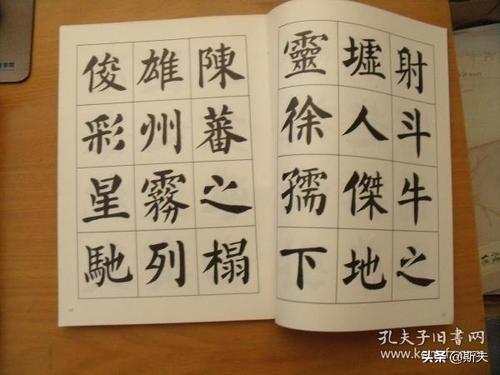 射斗牛之
墟人傑地
靈徐孺下
陳蕃之榻
雄州霧列
俊彩星馳
孔夫子旧书网
头条 @斯夫